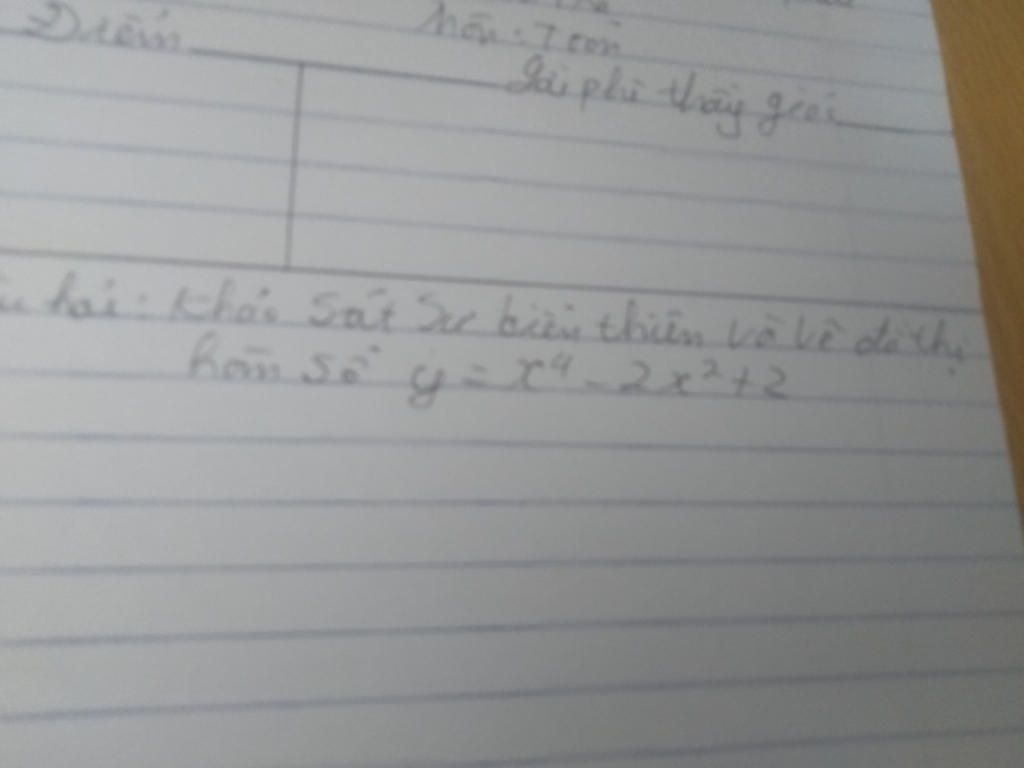 Điểm
Môn: Toán
Lời phê thầy giáo
hỏi: Khảo sát sự biến thiên và vẽ đồ thị
hàm số y = x⁴ - 2x² + 2